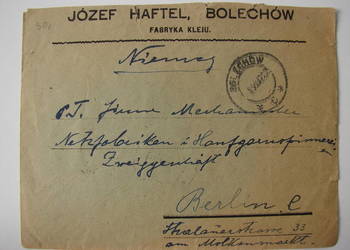 JÓZEF HAFTEL, BOLECHÓW
FABRYKA KLEJU.
Niemcy
BOLECHÓW
Firma Mechanische
Netzfabriken & Hanfgarnspinnerei
Zweiggeschäft
Berlin C
Stralauerstrasse 33
am Molkenmarkt